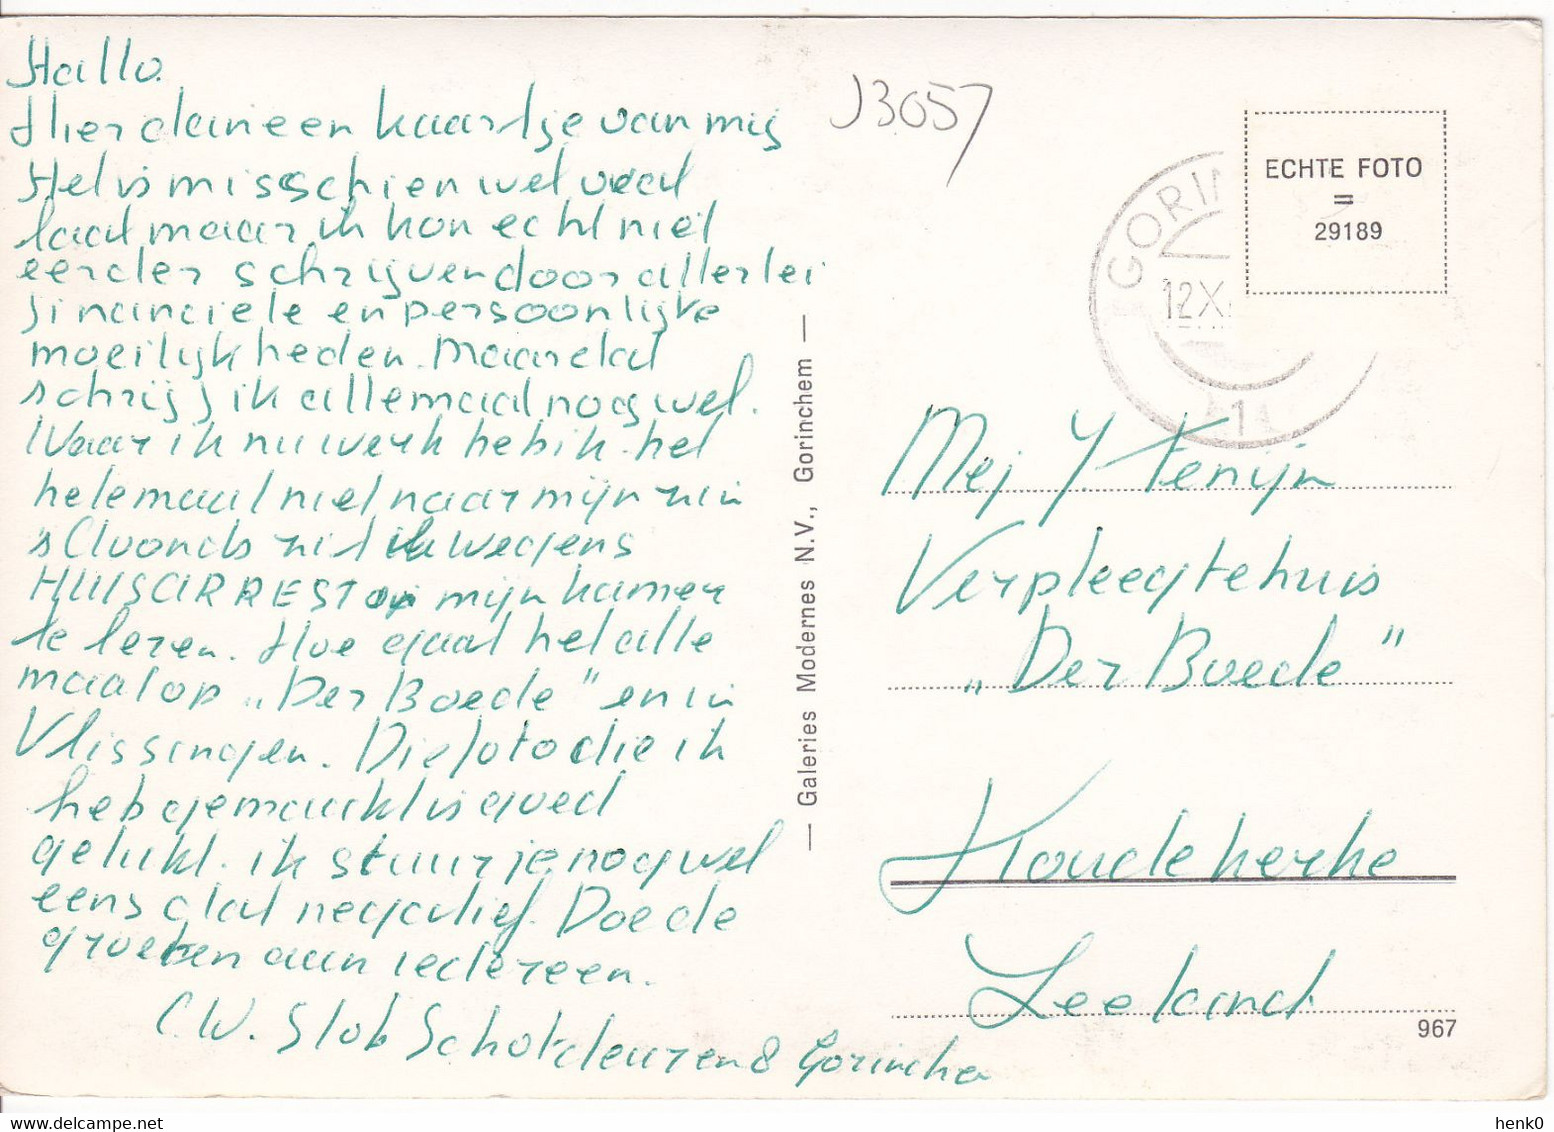 Hallo.
Hier dan een kaartje van mij
Het is misschien wel veel
laat maar ik kon echt niet
eerder schrijven door allerlei
financiele en persoonlijke
moeilijkheden. Maar dat
schrijf ik allemaal nog wel.
Waar ik nu werk heb ik het
helemaal niet naar mijn zin
's Avonds zit ik wegens
HUISARREST op mijn kamer
te lezen. Hoe gaat het alle
maal op „Der Boede" en in
Vlissingen. Die foto die ik
heb gemaakt is goed
gelukt. ik stuur je nog wel
eens dat negatief. Doe de
groeten aan iedereen.
C.W. Slob Schotdeuren 8 Gorinchem
J3057
— Galeries Modernes N.V., Gorinchem —
GORIN
12 X
1
ECHTE FOTO
=
29189
Mej Y. Tenijn
Verpleegtehuis
„Der Boede"
Koudekerke
Zeeland
967
henk0